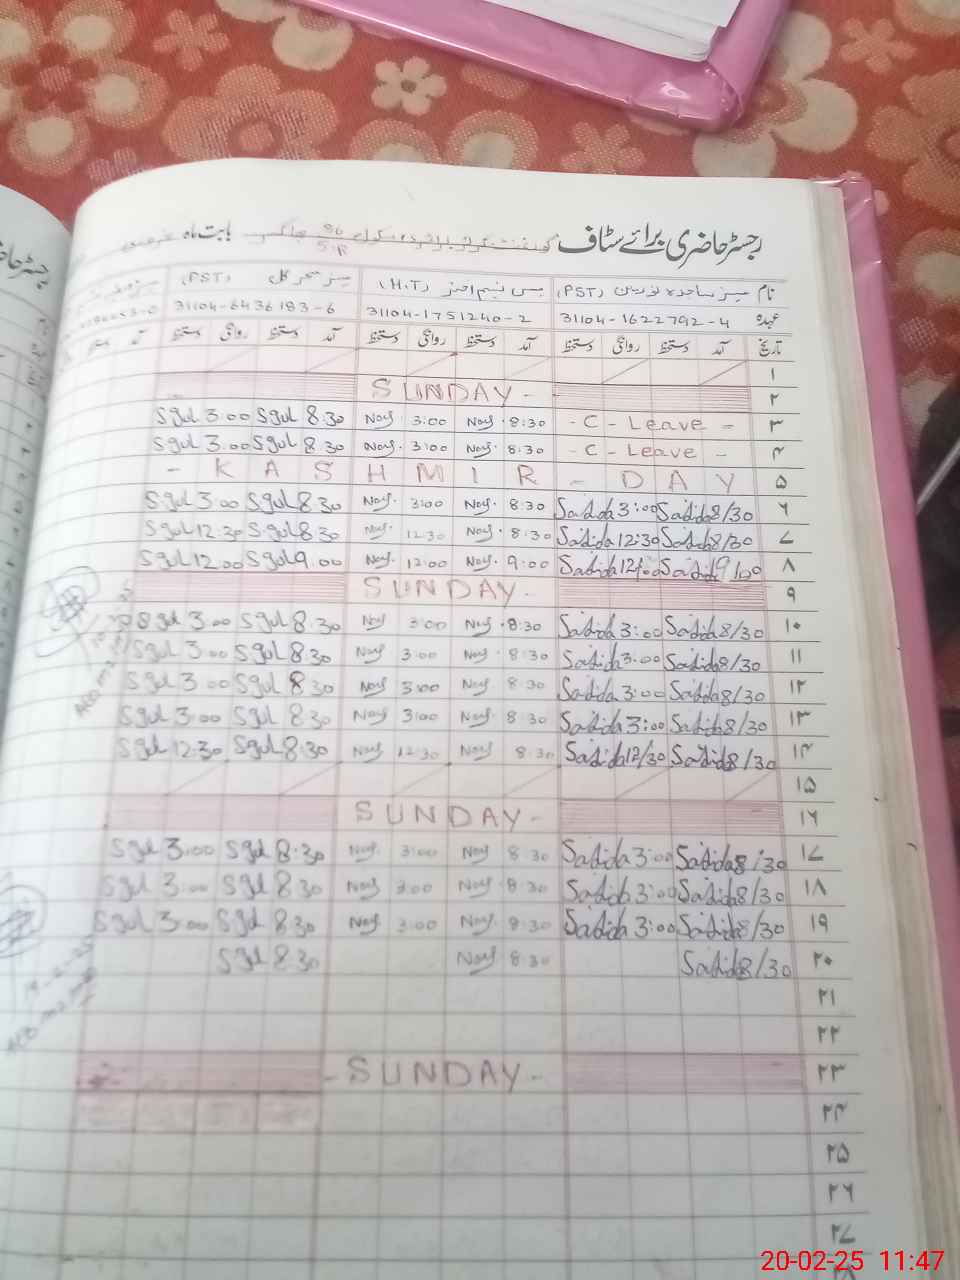 رجسٹر حاضری برائے سٹاف گورنمنٹ گرلز پرائمری سکول 96 5.R بابت ماہ فروری
نام مسز ساجدہ نورین (PST) مس نسیم اختر (H.T) مسز سحر گل (PST)
عہدہ 31104-1622792-4 31104-1751240-2 31104-6436183-6
تاریخ آمد دستخط روانگی دستخط آمد دستخط روانگی دستخط آمد دستخط روانگی دستخط آمد دستخط
۱
۲ SUNDAY - -
۳ - C - Leave - 8:30 Nay. 3:00 Nay. 8:30 Sgul 3:00 Sgul
۴ - C - Leave - 8:30 Nay. 3:00 Nay. 8:30 Sgul 3:00 Sgul
۵ - KASHMIR - DAY
۶ 8/30 Sadida 3:00 Sadida 8:30 Nay. 3:00 Nay. 8:30 Sgul 3:00 Sgul
۷ 8/30 Sadida 12:30 Sadida 8:30 Nay. 12:30 Nay. 8:30 Sgul 12:30 Sgul
۸ 9/00 Sadida 12:00 Sadida 9:00 Nay. 12:00 Nay. 9:00 Sgul 12:00 Sgul
۹ SUNDAY -
۱۰ 8/30 Sadida 3:00 Sadida 8:30 Nay. 3:00 Nay 8:30 Sgul 3:00 Sgul
۱۱ 8/30 Sadida 3:00 Sadida 8:30 Nay. 3:00 Nay 8:30 Sgul 3:00 Sgul
۱۲ 8/30 Sadida 3:00 Sadida 8:30 Nay 3:00 Nay 8:30 Sgul 3:00 Sgul
۱۳ 8/30 Sadida 3:00 Sadida 8:30 Nay. 3:00 Nay 8:30 Sgul 3:00 Sgul
۱۴ 8/30 Sadida 12/30 Sadida 8:30 Nay 12:30 Nay 8:30 Sgul 12:30 Sgul
۱۵
۱۶ SUNDAY -
۱۷ 8:30 Sadida 3:00 Sadida 8:30 Nay 3:00 Nay 8:30 Sgul 3:00 Sgul
۱۸ 8/30 Sadida 3:00 Sadida 8:30 Nay 3:00 Nay 8:30 Sgul 3:00 Sgul
۱۹ 8/30 Sadida 3:00 Sadida 8:30 Nay 3:00 Nay 8:30 Sgul 3:00 Sgul
۲۰ 8/30 Sadida 8:30 Nay 8:30 Sgul
۲۱
۲۲
۲۳ - SUNDAY -
۲۴
۲۵
۲۶
۲۷
20-02-25 11:47